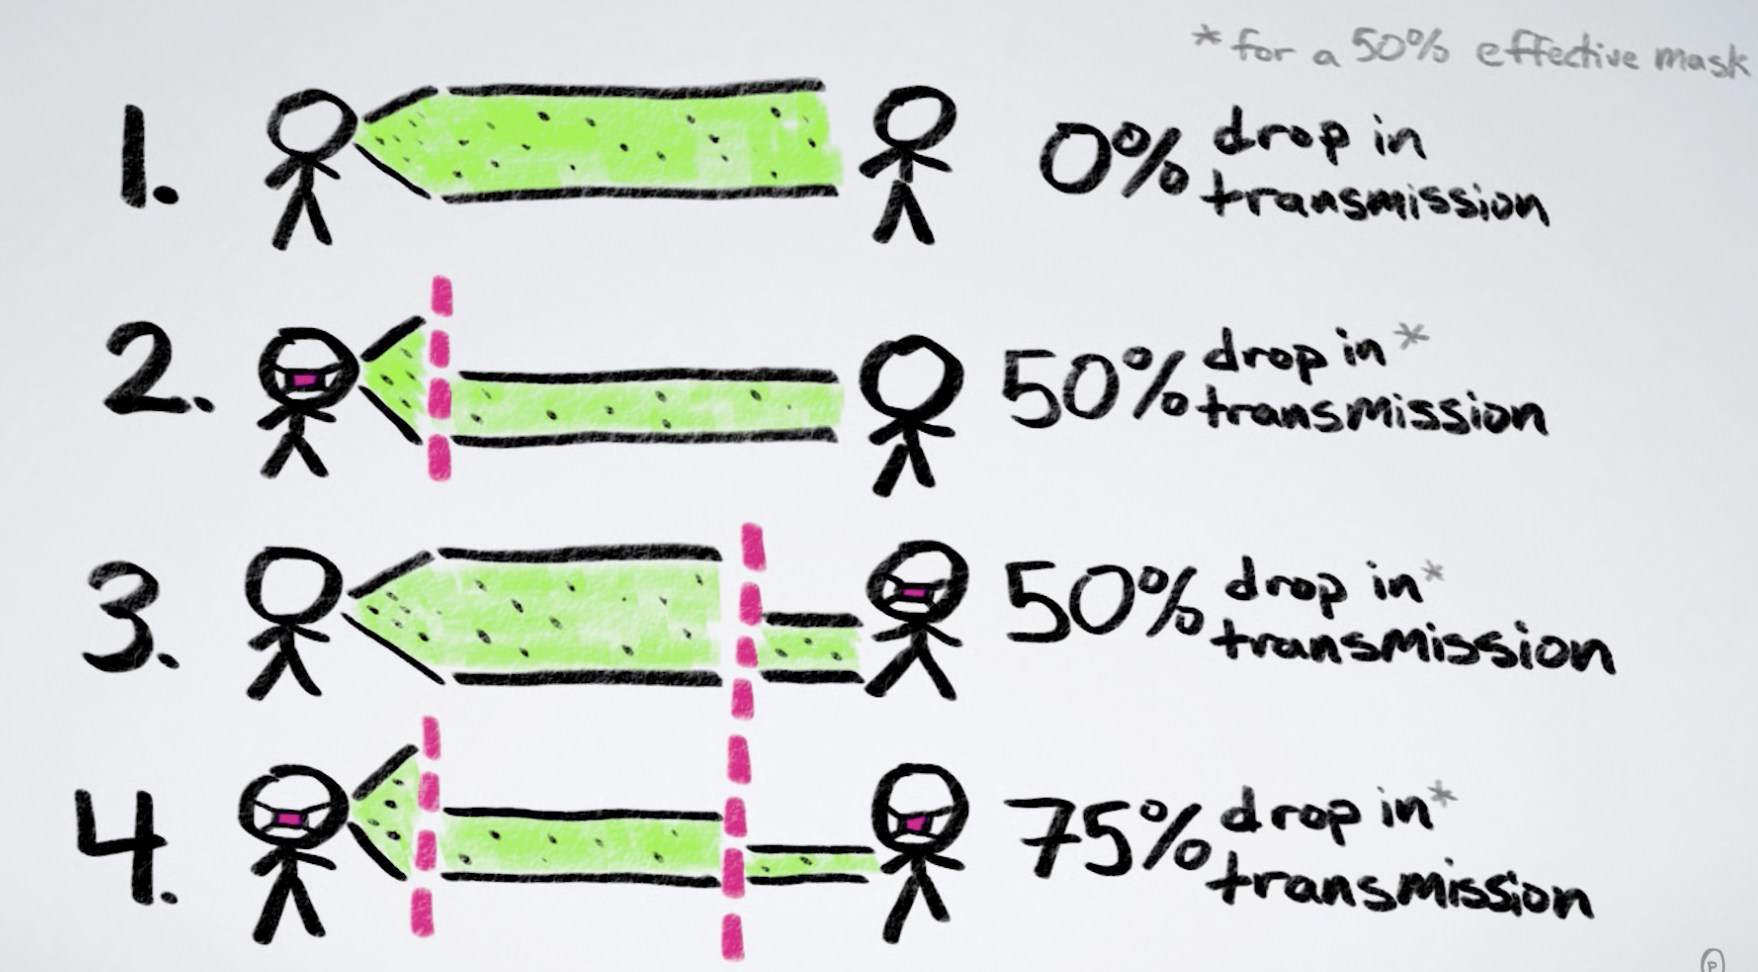 * for a 50% effective mask
1. 0% drop in
transmission
2. 50% drop in *
transmission
3. 50% drop in *
transmission
4. 75% drop in *
transmission
P